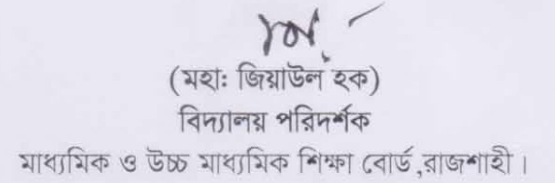 (মহা: জিয়াউল হক)
বিদ্যালয় পরিদর্শক
মাধ্যমিক ও উচ্চ মাধ্যমিক শিক্ষা বোর্ড,রাজশাহী।